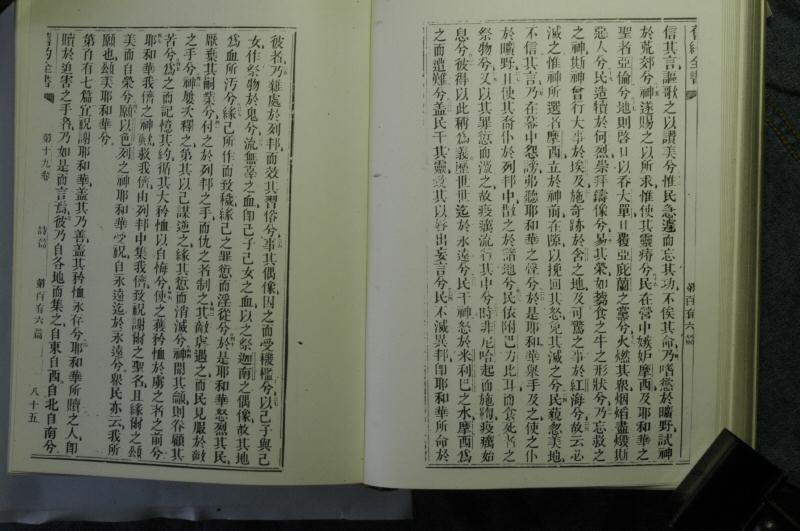 舊約全書
第百有六篇
信其言,謳歌之以讚美兮,惟民急遽而忘其功,不俟其命,乃嗜慾於曠野,試神
於荒郊兮,神遂賜之以所求,惟使其靈瘠兮,民在營中嫉妒摩西,及耶和華之
聖者亞倫兮,地則啓口以吞大單,口覆亞庇蘭之黨兮,火燃其衆,烟焰盡燬斯
惡人兮,民造犢於何烈,崇拜鑄像兮,易其榮,如芻食之牛之形狀兮,乃忘救之
之神,斯神曾行大事於埃及,施奇跡於含之地,及可驚之事於紅海兮,故云必
滅之,惟神所選者摩西,立於神前在隙,以挽回其怒,免其滅之兮,民藐忽美地,
不信其言,乃在幕中怨謗,弗聽耶和華之聲兮,於是耶和華舉手及之,使之仆
於曠野,且使其裔仆於列邦中,散之於諸地兮,民依附巴力比耳,而食死者之
祭物兮,又以其罪愆而激之,故疫癘流行其中兮,時非尼哈起而施鞫,疫癘始
息兮,彼得以此稱爲義,歷世世迄於永遠兮,民干神怒於米利巴之水,摩西爲
之而遭難兮,蓋民干其靈,致其以唇出妄言兮,民不滅異邦,即耶和華所命於
彼者,乃雜處於列邦,而效其習俗兮,事其偶像,因之而受機檻兮,以己子與己
女,作祭物於鬼兮,流無辜之血,即己子己女之血,以之祭迦南之偶像,故其地
爲血所汚兮,緣己所作而致穢,緣己之罪愆而淫從兮,於是耶和華怒烈其民,
厭棄其嗣業兮,付之於列邦之手,而仇之者制之,其敵虐遇之,而民見服於敵
之手兮,神屢次釋之,第其以己謀逆之,緣其愆而消滅兮,神聞其籲,則眷顧其
苦兮,爲之而記憶其約,循其大矜恤以自悔兮,使之獲矜恤於虜之者之前兮,
耶和華我儕之神歟,救我儕,由列邦中集我儕,致祝謝爾之聖名,且緣爾之頌
美而自榮兮,願以色列之神耶和華受祝,自永遠迄於永遠兮,衆民亦云,我所
願也,頌美耶和華兮
第百有七篇 宜祝謝耶和華,蓋其乃善,蓋其矜恤永存兮,耶和華所贖之人,即
贖於迫害之手者,乃如是而言焉,彼乃自各地而集之,自東自西,自北自南兮,
舊約全書 第十九卷 詩篇 第百有六篇 八十五